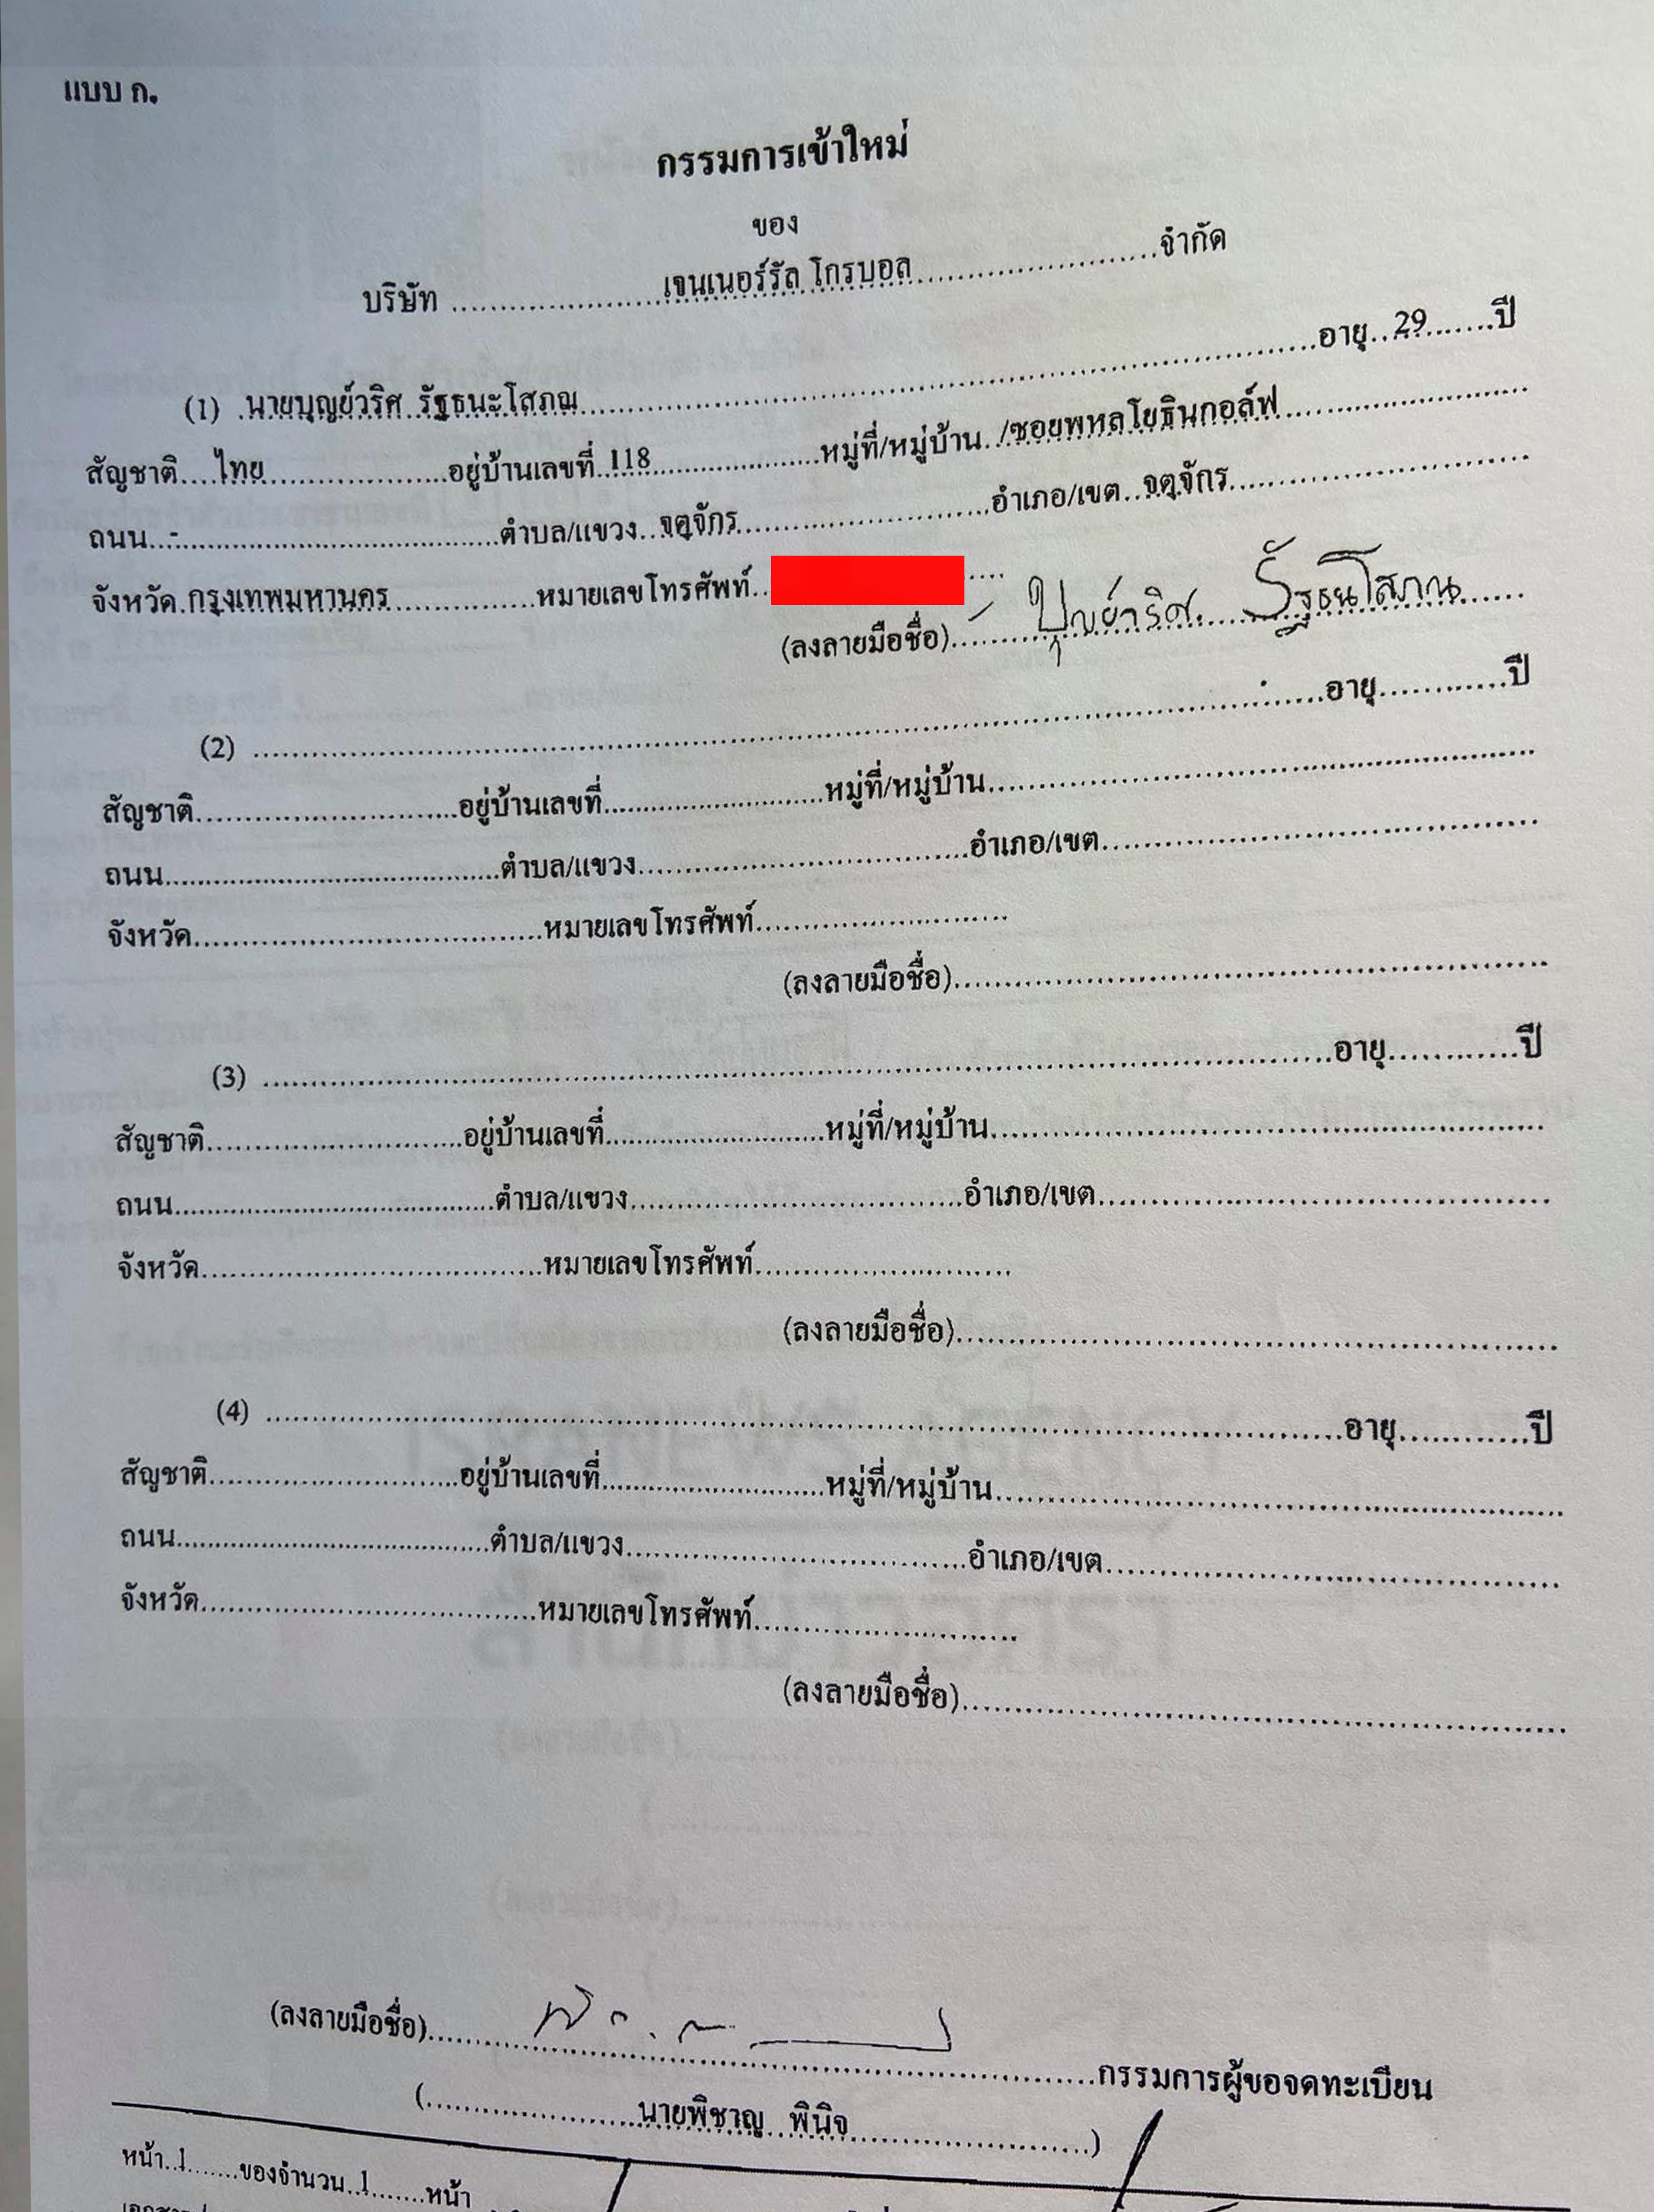 แบบ ก.
กรรมการเข้าใหม่
ของ
บริษัท ..........เจนเนอร์รัล โกรบอล..........จำกัด
(1) .นายบุญย์วริศ รัฐธนะโสภณ..........อายุ..29.......ปี
สัญชาติ....ไทย..........อยู่บ้านเลขที่..118..........หมู่ที่/หมู่บ้าน../ซอยพหลโยธินกอล์ฟ..........
ถนน...-..........ตำบล/แขวง...จตุจักร..........อำเภอ/เขต...จตุจักร..........
จังหวัด.กรุงเทพมหานคร..........หมายเลขโทรศัพท์..
(ลงลายมือชื่อ)....บุญย์วริศ รัฐธนโสภณ......
(2) ..........อายุ..........ปี
สัญชาติ..........อยู่บ้านเลขที่..........หมู่ที่/หมู่บ้าน..........
ถนน..........ตำบล/แขวง..........อำเภอ/เขต..........
จังหวัด..........หมายเลขโทรศัพท์..........
(ลงลายมือชื่อ)..........
(3) ..........อายุ..........ปี
สัญชาติ..........อยู่บ้านเลขที่..........หมู่ที่/หมู่บ้าน..........
ถนน..........ตำบล/แขวง..........อำเภอ/เขต..........
จังหวัด..........หมายเลขโทรศัพท์..........
(ลงลายมือชื่อ)..........
(4) ..........อายุ..........ปี
สัญชาติ..........อยู่บ้านเลขที่..........หมู่ที่/หมู่บ้าน..........
ถนน..........ตำบล/แขวง..........อำเภอ/เขต..........
จังหวัด..........หมายเลขโทรศัพท์..........
(ลงลายมือชื่อ)..........
(ลงลายมือชื่อ)..........กรรมการผู้ขอจดทะเบียน
(..........นายพิชาญ พินิจ..........)
หน้า..1.......ของจำนวน..1.......หน้า